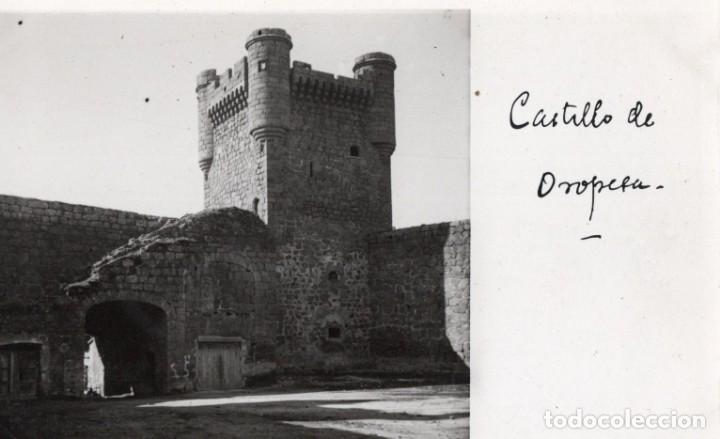 Castillo de
Oropesa.
todocoleccion